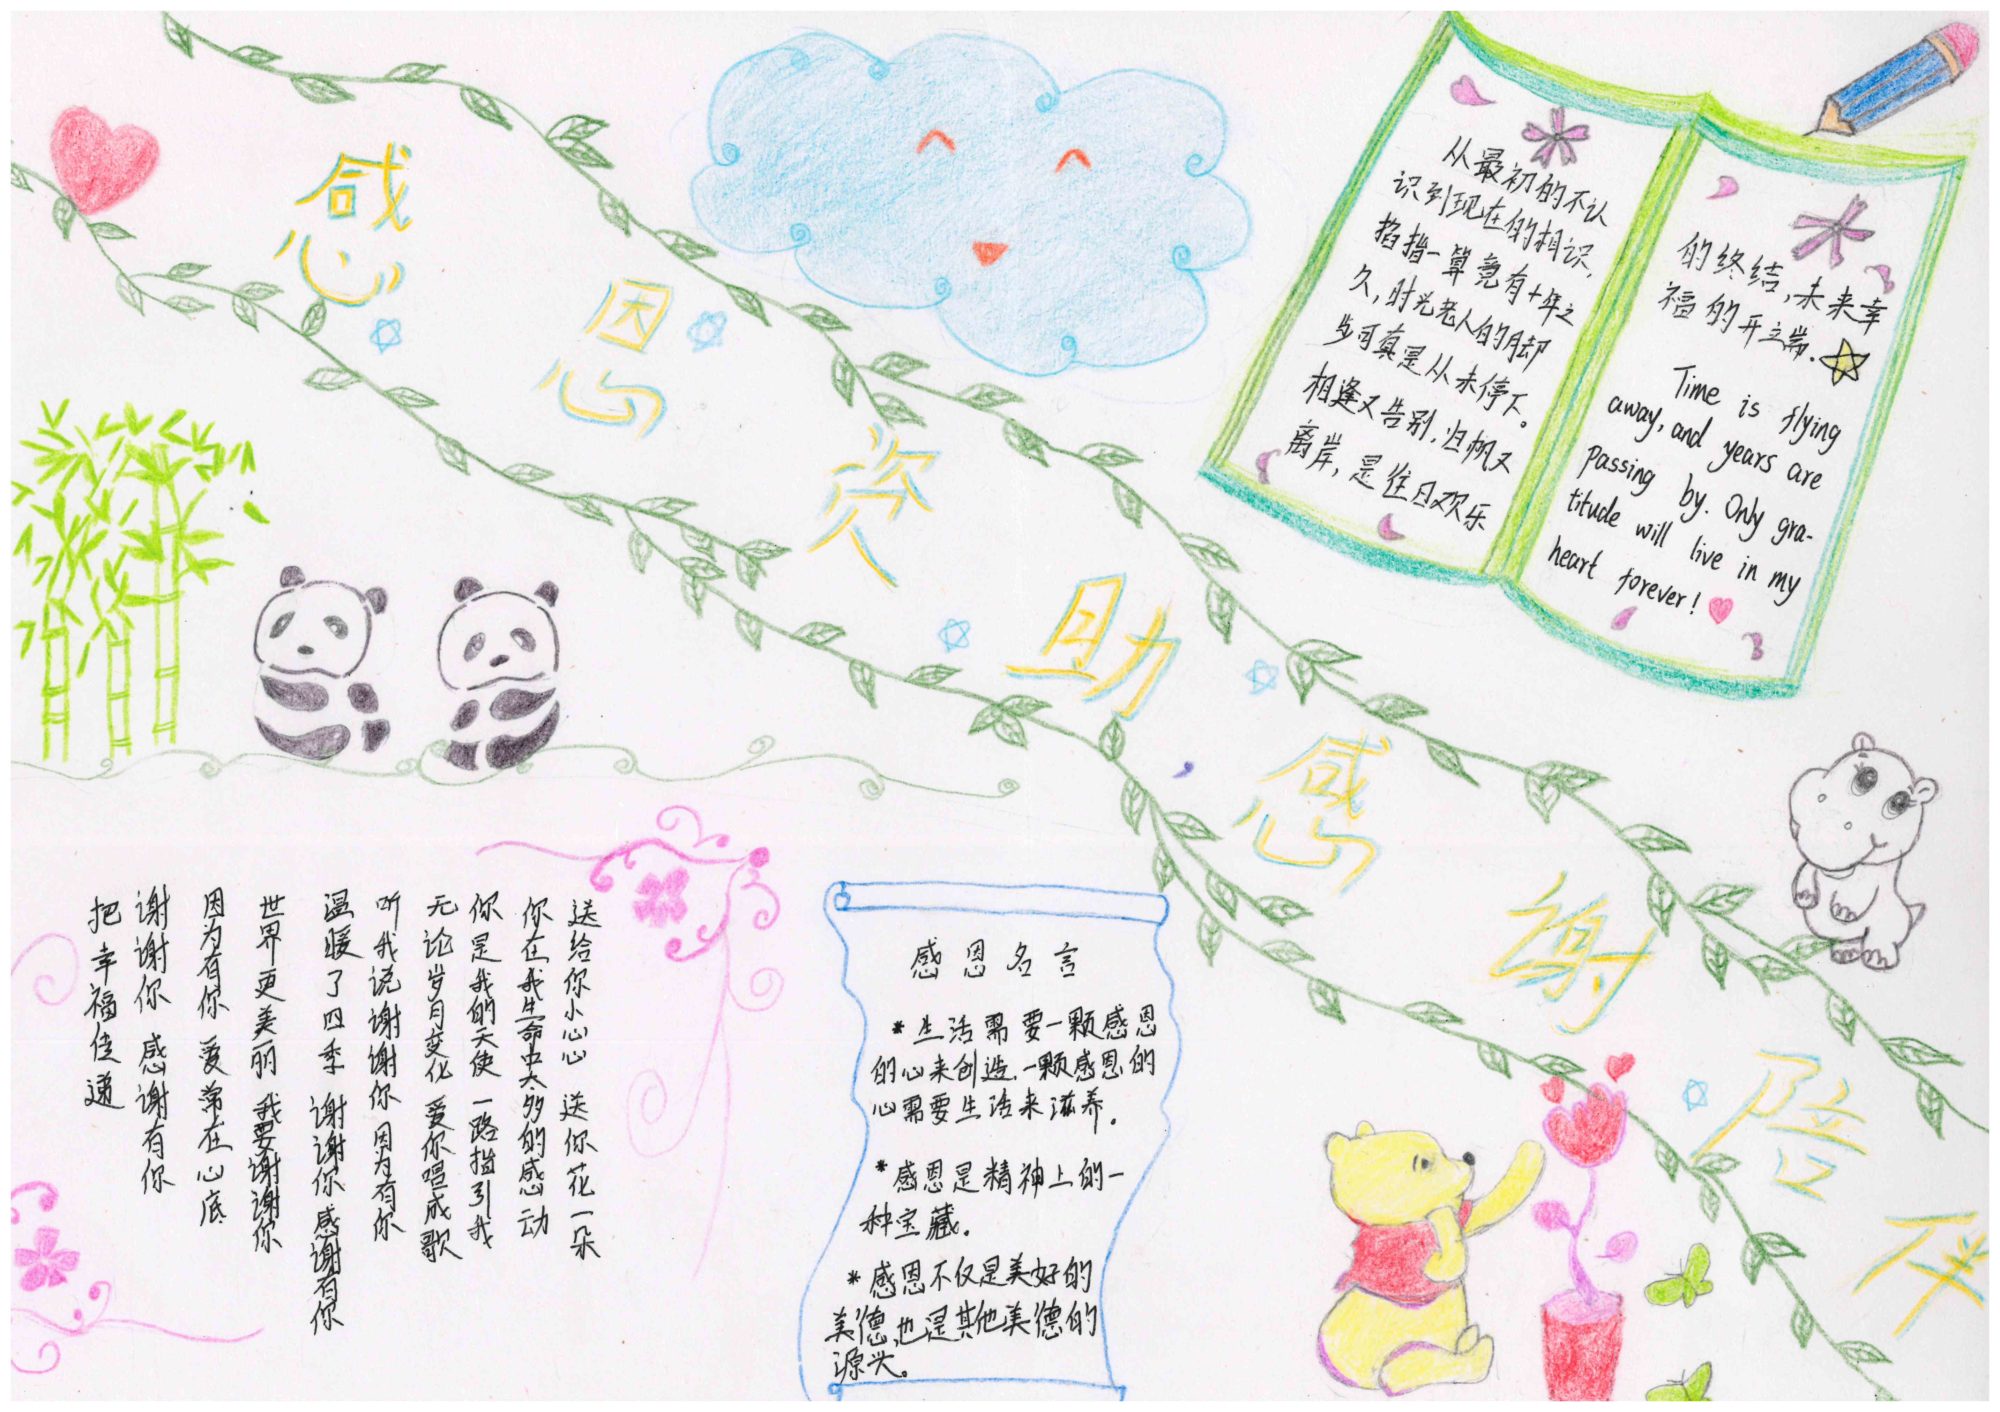 感恩资助感谢陪伴
从最初的不认
识到现在的相识,
掐指一算竟有十年之
久,时光老人的脚
步可真是从未停下。
相逢又告别,归帆又
离岸,是往日欢乐
的终结,未来幸
福的开端.
Time is flying
away, and years are
passing by. Only gra-
titude will live in my
heart forever!
送给你小心心 送你花一朵
你在我生命中太多的感动
你是我的天使 一路指引我
无论岁月变化 爱你唱成歌
听我说谢谢你 因为有你
温暖了四季 谢谢你 感谢有你
世界更美丽 我要谢谢你
因为有你 爱常在心底
谢谢你 感谢有你
把幸福传递
感恩名言
*生活需要一颗感恩
的心来创造,一颗感恩的
心需要生活来滋养。
*感恩是精神上的一
种宝藏。
*感恩不仅是美好的
美德,也是其他美德的
源头。